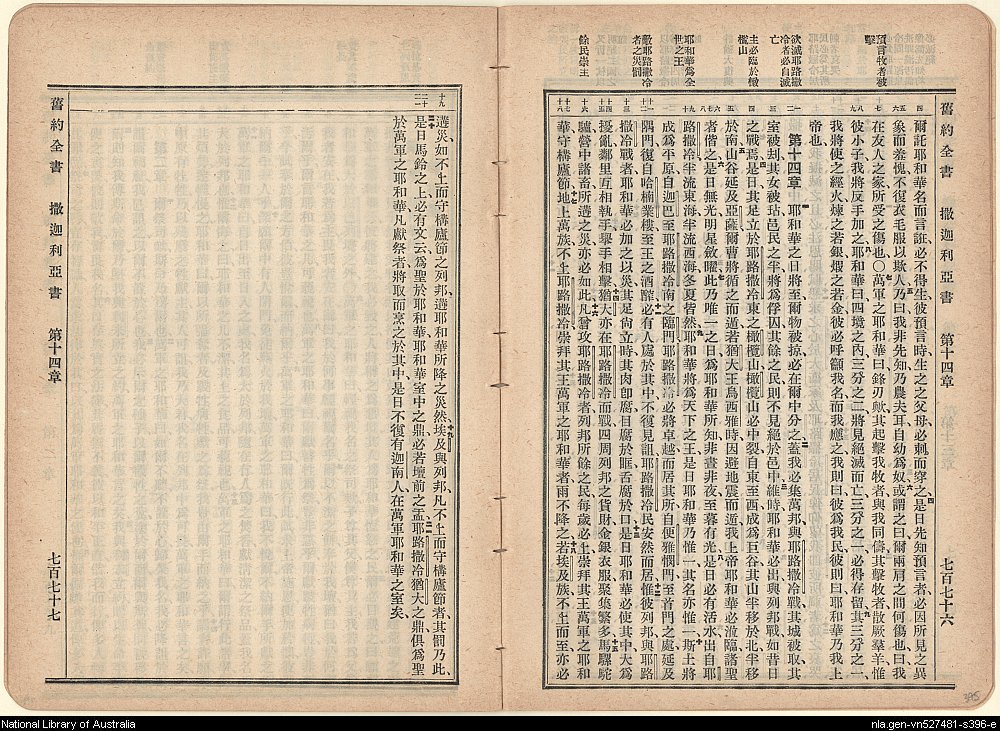 舊約全書 撒迦利亞書 第十四章 七百七十六
預言牧者被擊
欲滅耶路撒冷者必自滅亡
主必臨於橄欖山
耶和華爲全世之王
敵耶路撒冷者之災罰
餘民崇主
爾託耶和華名而言誑必不得生彼預言時生之之父母必刺而穿之是日先知預言者必因所見之異
象而羞愧不復衣毛服以欺人乃曰我非先知乃農夫耳自幼爲奴或謂之曰爾兩肩之間何傷也曰我
在友人之家所受之傷也〇萬軍之耶和華曰鋒刃歟其起擊我牧者與我同儔其擊牧者散厥羣羊惟
彼小子我將反手加之耶和華曰四境之內三分之二將見絕滅而亡三分之一必得存留其三分之一
我將使之經火煉之若銀煆之若金彼必呼籲我名而我應之我則曰彼爲我民彼則曰耶和華乃我上
帝也
第十四章 耶和華之日將至爾物被掠必在爾中分之蓋我必集萬邦與耶路撒冷戰其城被取其
室被刦其女被玷邑民之半將爲俘囚其餘之民則不見絕於邑中維時耶和華必出與列邦戰如昔日
之戰焉是日其足立於耶路撒冷東之橄欖山橄欖山必中裂自東至西成爲巨谷其山半移於北半移
於南山谷延及亞薩爾曹將循之而遁若猶大王烏西雅時因避地震而遁我上帝耶和華必涖臨諸聖
者偕之是日無光明星斂曜此乃唯一之日爲耶和華所知非晝非夜至暮有光是日必有活水出自耶
路撒冷半流東海半流西海冬夏皆然耶和華將爲天下之王是日耶和華乃惟一其名亦惟一斯土將
成爲平原自迦巴至耶路撒冷南之臨門耶路撒冷必將卓越而居其所自便雅憫門至首門之處延及
隅門復自哈楠業樓至王之酒醡必有人處於其中不復見詛耶路撒冷民安然而居惟彼列邦與耶路
撒冷戰者耶和華必加之以災其足尙立時其肉卽腐目腐於眶舌腐於口是日耶和華必使其中大爲
擾亂鄰里互相執手舉手相擊猶大亦在耶路撒冷而戰四周列邦之貨財金銀衣服聚集繁多馬騾駝
驢營中諸畜所遘之災亦必如此凡曾攻耶路撒冷者列邦所餘之民每歲必上崇拜其王萬軍之耶和
華守構廬節地上萬族不上耶路撒冷崇拜其王萬軍之耶和華者雨不降之若埃及族不上而至亦必
遘災如不上而守構廬節之列邦遘耶和華所降之災然埃及與列邦凡不上而守構廬節者其罰乃此
是日馬鈴之上必有文云爲聖於耶和華耶和華室中之鼎必若壇前之盂耶路撒冷猶大之鼎俱爲聖
於萬軍之耶和華凡獻祭者將取而烹之於其中是日不復有迦南人在萬軍耶和華之室矣
舊約全書 撒迦利亞書 第十四章 七百七十七
395
National Library of Australia
nla.gen-vn527481-s396-e